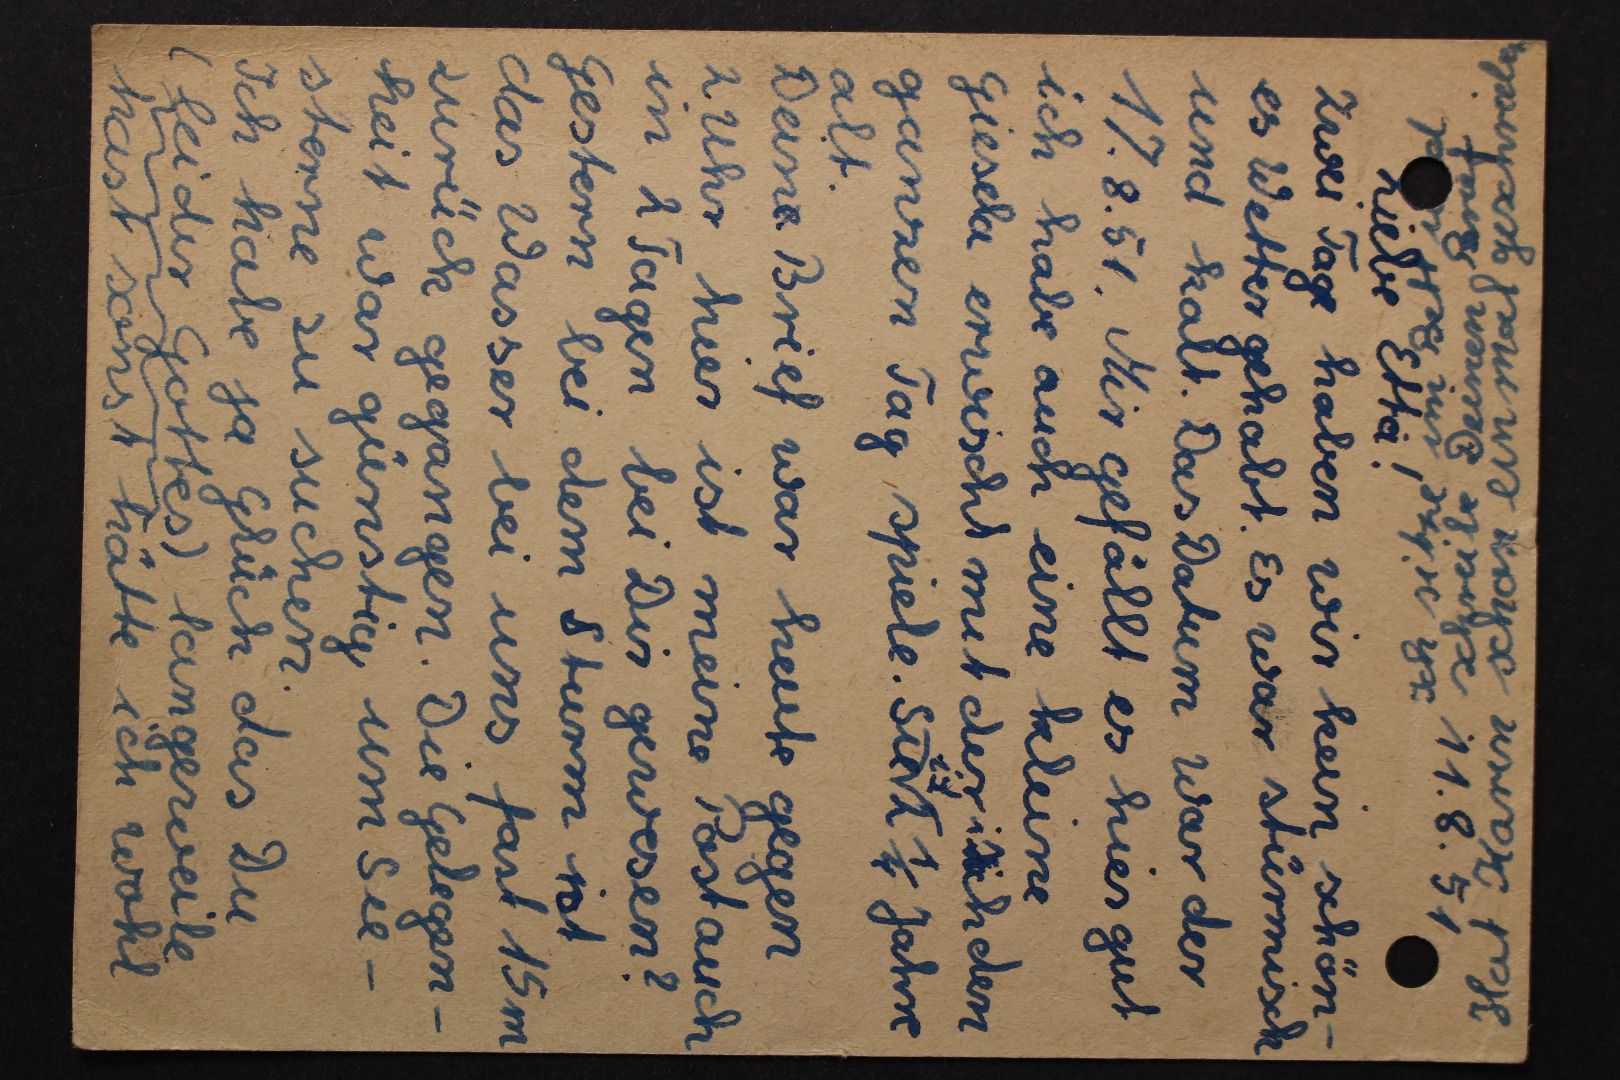 11. 8. 51
Liebe Etta!
Zwei Tage haben wir kein schön-
es Wetter gehabt. Es war stürmisch
und kalt. Das Datum war der
17. 8. 51. Mir gefällt es hier gut
ich habe auch eine kleine
Giesela erwischt mit der ich den
ganzen Tag spiele. Sie ist 1 1/4 Jahre
alt.
Deine Brief war heute gegen
2 Uhr hier ist meine Post auch
in 2 Tagen bei Dir gewesen?
Gestern bei dem Sturm ist
das Wasser bei uns fast 15 m
zurück gegangen. Die Gelegen-
heit war günstig, um See-
sterne zu suchen.
Ich habe ja Glück das Du
(leider Gottes) langeweile
hast sonst hätte ich wohl
im Bett
Hat Karin schon einmal